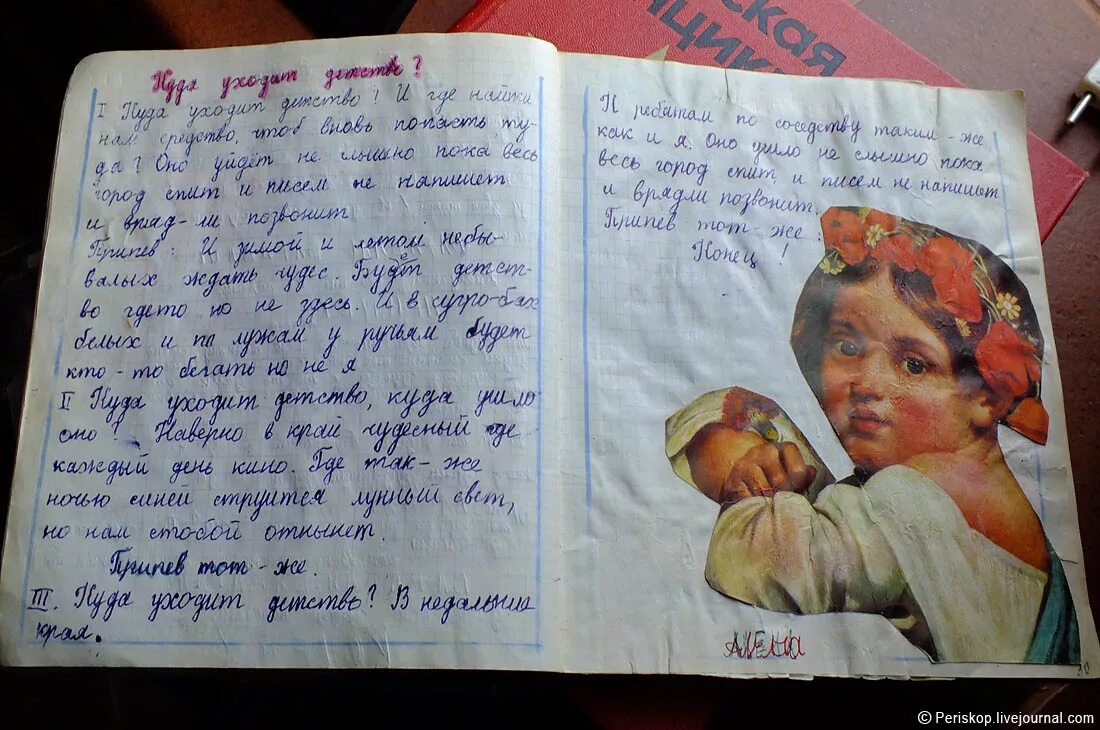 ская
нцикл
Куда уходит детство?
I Куда уходит детство! И где найти
нам средство, чтоб вновь попасть ту-
да? Оно уйдёт не слышно пока весь
город спит и писем не напишет
и вряд-ли позвонит
Припев: И зимой и летом небы-
валых ждать чудес. Будет детст-
во гдето но не здесь. И в сугро-бах
белых и по лужам у ручьям будет
кто-то бегать но не я
II Куда уходит детство, куда ушло
оно? Наверно в край чудесный где
каждый день кино. Где так-же
ночью синей струится лунный свет,
но нам стобой отныне нет.
Припев тот-же.
III. Куда уходит детство? В недальние
края.
К ребятам по соседству таким-же
как и я. Оно ушло не слышно пока
весь город спит и писем не напишет
и врядли позвонит.
Припев тот-же.
Конец!
АЛЕНА
© Periskop.livejournal.com